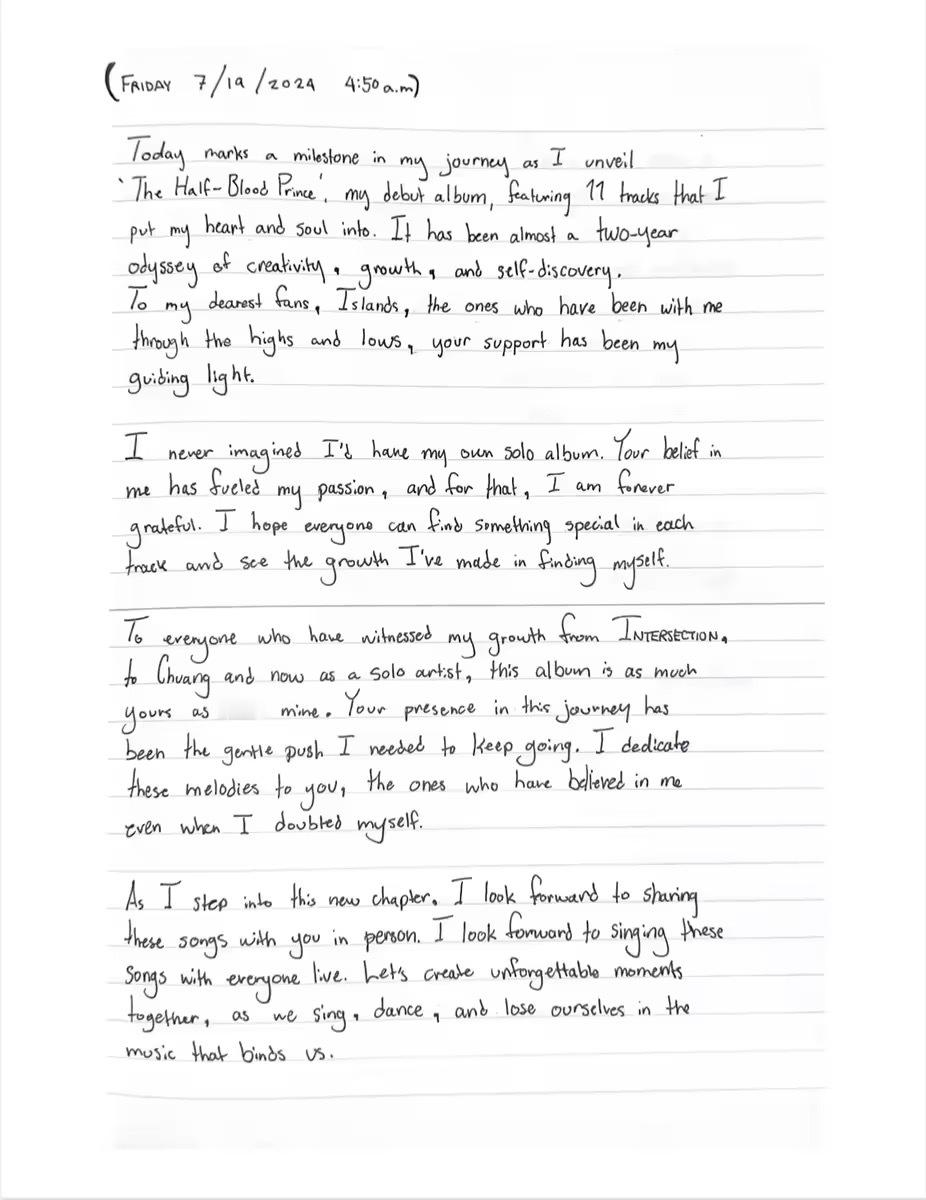 (FRIDAY 7/19/2024 4:50 a.m)
Today marks a milestone in my journey as I unveil
'The Half-Blood Prince', my debut album, featuring 11 tracks that I
put my heart and soul into. It has been almost a two-year
odyssey of creativity, growth, and self-discovery.
To my dearest fans, Islands, the ones who have been with me
through the highs and lows, your support has been my
guiding light.
I never imagined I'd have my own solo album. Your belief in
me has fueled my passion, and for that, I am forever
grateful. I hope everyone can find something special in each
track and see the growth I've made in finding myself.
To everyone who have witnessed my growth from INTERSECTION,
to Chuang and now as a solo artist, this album is as much
yours as mine. Your presence in this journey has
been the gentle push I needed to keep going. I dedicate
these melodies to you, the ones who have believed in me
even when I doubted myself.
As I step into this new chapter. I look forward to sharing
these songs with you in person. I look forward to singing these
songs with everyone live. Let's create unforgettable moments
together, as we sing, dance, and lose ourselves in the
music that binds us.